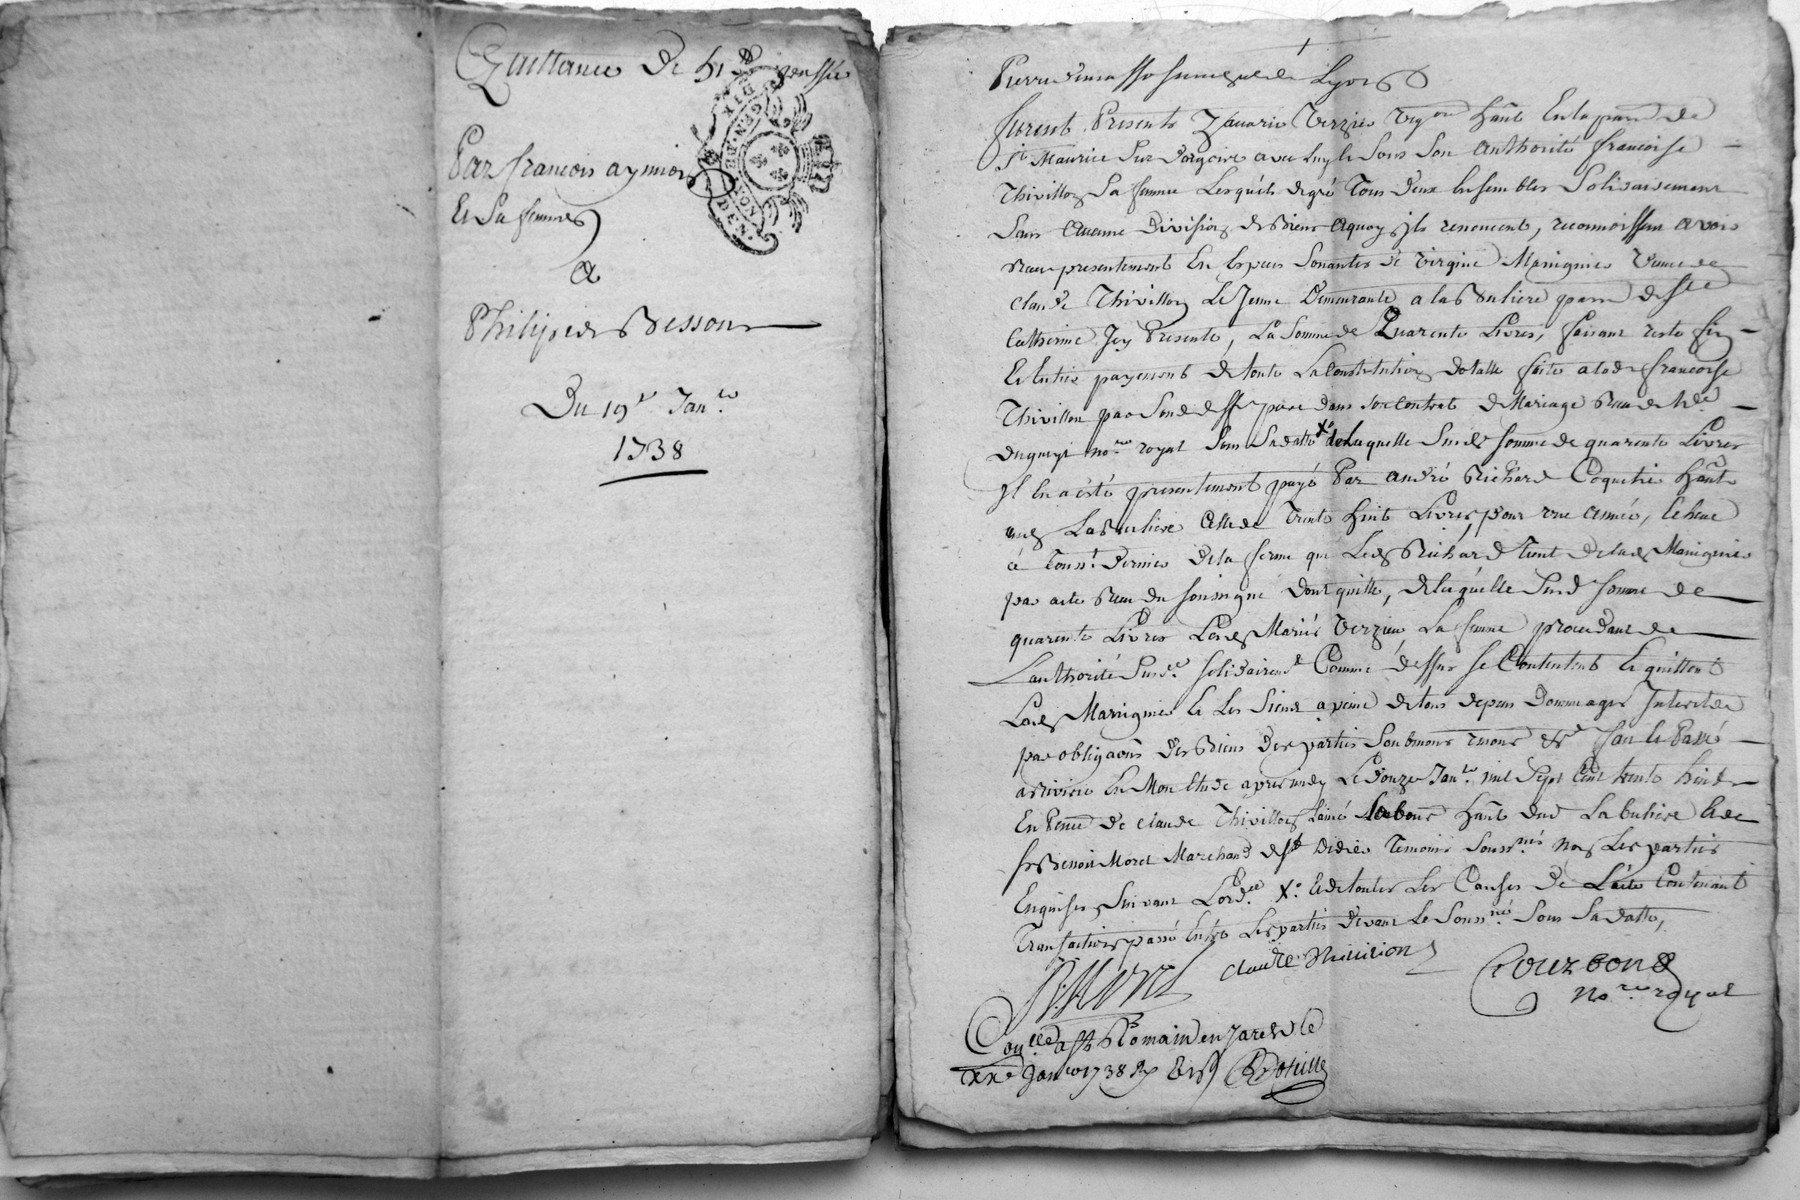 Quittance de 51 # passée
Par francois aymion
Et Sa femme
a
Philipe Besson
Du 19e Janer
1738
GEN. DE LYON DIX DEN.
Pierre
furent Presents Zacarie Verzieu Vigon habt En la parre de
St Maurice Sur dargoire avec luy le Sous Son authorité francoise
Thivillon Sa femme Lesquels de gré Tous deux Ensembles Solidairement
Sans Aucune Division de Biens a quoy ils renoncent, reconnoissent avoir
receu presentement En Especes Sonantes de Virginie Marignier Veuve de
Claude Thivillon Le Jeune Demeurante a la Buliere parre de Ste
Catherine Icy Presente, La Somme de Quarente Livres, faisant reste fin
Et Entier payement de toute La Constitution dotalle faite a lade francoise
Thivillon par Sond deff pere dans Son Contrat de Mariage Receu de Me
nore royal Sous Sa datte X° de Laquelle Susde Somme de quarente Livres
Il En a été presentement payé Par andré Richard Coquetier habt
aud La Buliere Celle de Trente huit Livres pour une année, echeue
à Touss. dernier de la ferme que Led Richard Tient de lad Marignier
par acte Receu du soussigné dont quitte, de laquelle Susd Somme de
quarente Livres Lesd Mariés Verzieu, La femme procedant de
L'authorité Susde. solidairemt Comme dessus se Contentent Et quittent
Lad Marignier Et Les Siens a peine de tous depens Dommages Interets
par obligaons des Biens des parties Soubmons renons &e fait Et Passé
a riviere En Mon Etude apres midy Le Douze Janer. mil Sept Cent trente huit
En Pnce de Claude Thivillon L'ainé Labour habt dud La buliere Et de
sr Benoit Morel Marchand de St Didier Temoins Soussnés non Les parties
Enquises Suivant L'ordce. X° Et de toutes Les Causes de L'acte Contenant
Transaction passé Entre Les parties devant Le Soussné Sous Sa datte,
B. Morel Claude Thivilion Courbon
Nore royal
Conlle a St Romain en Jarest le
xxe Janer 1738 R